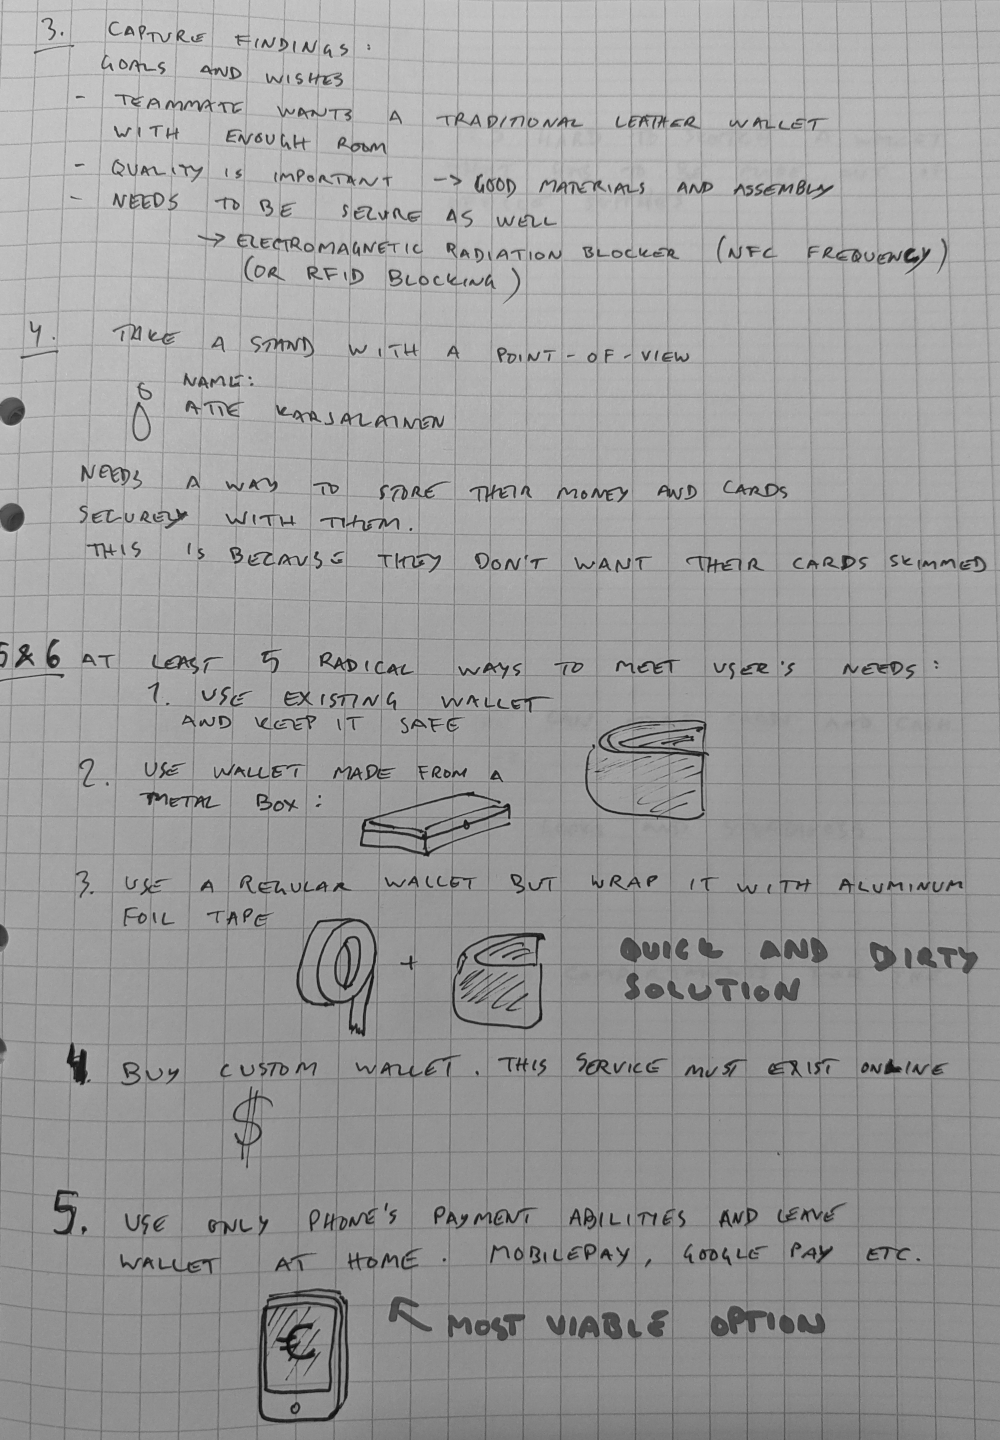 3. CAPTURE FINDINGS:
GOALS AND WISHES
- TEAMMATE WANTS A TRADITIONAL LEATHER WALLET
WITH ENOUGH ROOM
- QUALITY IS IMPORTANT -> GOOD MATERIALS AND ASSEMBLY
- NEEDS TO BE SECURE AS WELL
-> ELECTROMAGNETIC RADIATION BLOCKER (NFC FREQUENCY)
(OR RFID BLOCKING)
4. TAKE A STAND WITH A POINT-OF-VIEW
NAME:
ATTE KARJALAINEN
NEEDS A WAY TO STORE THEIR MONEY AND CARDS
SECURELY WITH THEM.
THIS IS BECAUSE THEY DON'T WANT THEIR CARDS SKIMMED
5&6 AT LEAST 5 RADICAL WAYS TO MEET USER'S NEEDS:
1. USE EXISTING WALLET
AND KEEP IT SAFE
2. USE WALLET MADE FROM A
METAL BOX:
3. USE A REGULAR WALLET BUT WRAP IT WITH ALUMINUM
FOIL TAPE
+
QUICK AND DIRTY
SOLUTION
4. BUY CUSTOM WALLET. THIS SERVICE MUST EXIST ONLINE
$
5. USE ONLY PHONE'S PAYMENT ABILITIES AND LEAVE
WALLET AT HOME. MOBILEPAY, GOOGLE PAY ETC.
€
MOST VIABLE OPTION